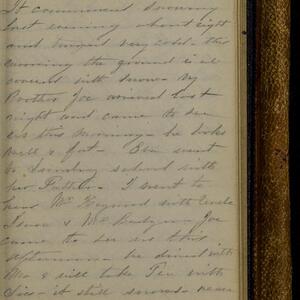 It commenced snowing
last evening about eight
and turned very cold - this
morning the ground is all
covered with snow - my
Brother Joe arrived last
night and came to see
us this morning - he looks
well & fat - Eva went
to Sunday school with
her Father - I went to
hear Mr Heywood with Uncle
& Mr - Joe
came to see us this
afternoon - he dined with
Ma & will take Tea with
Sis - it still snows - never